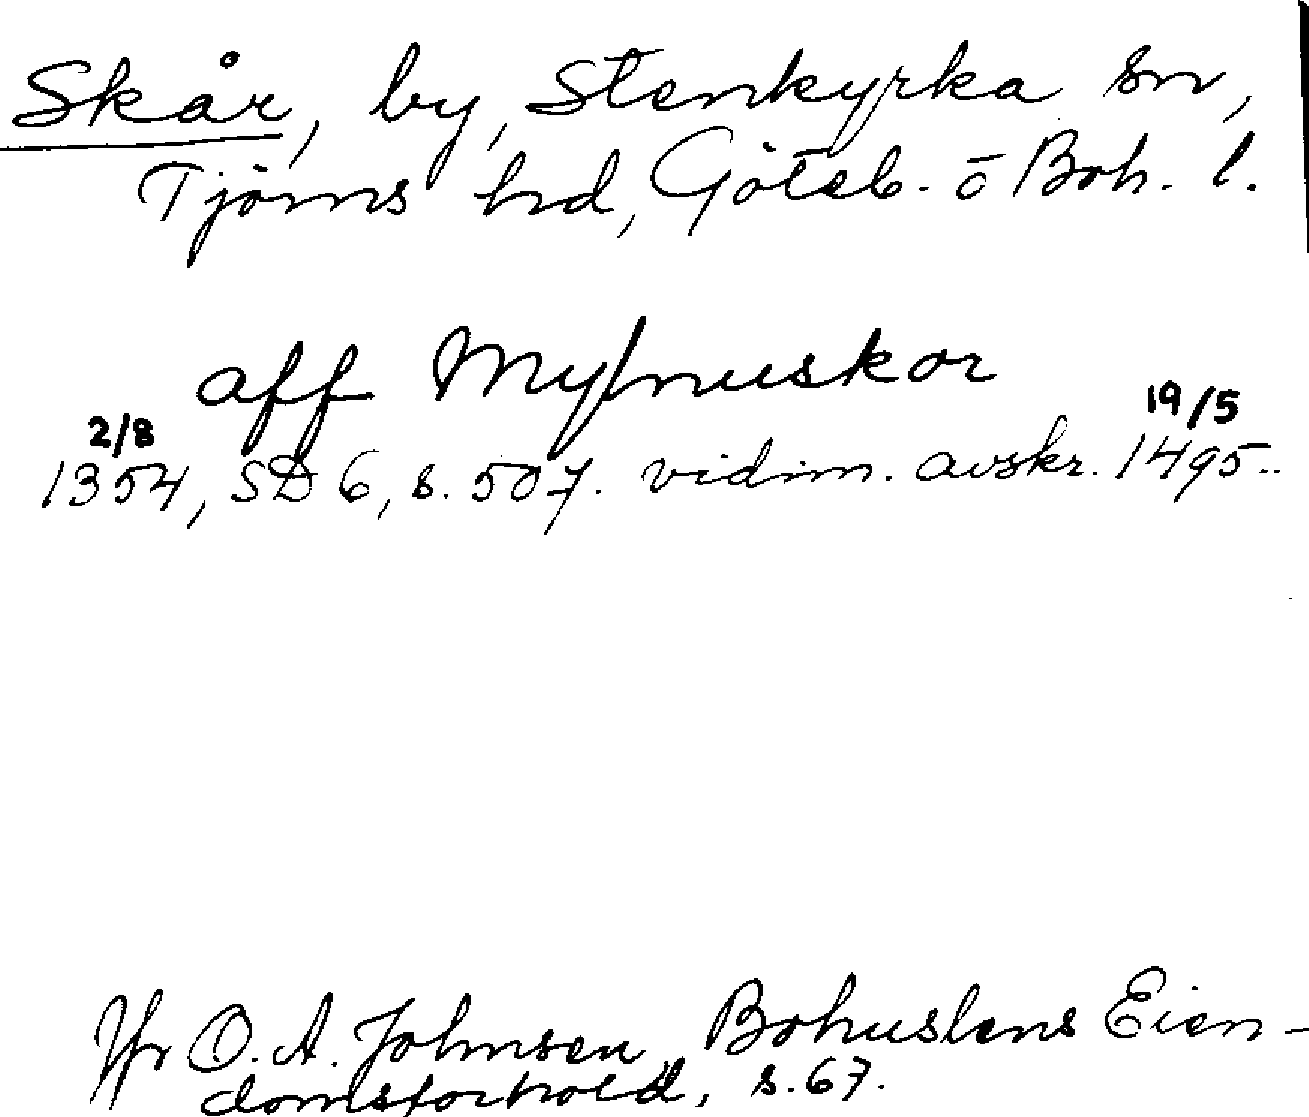 Skår, by, Stenkyrka sn,
Tjörns hd, Göteb. o Boh. l.
aff Mylnuskor
2/8 19/5
1354, SD 6, s. 507. vidim. avskr. 1495..
Jfr O. A. Johnsen, Bohuslens Eien-
domsforhold, s. 67.